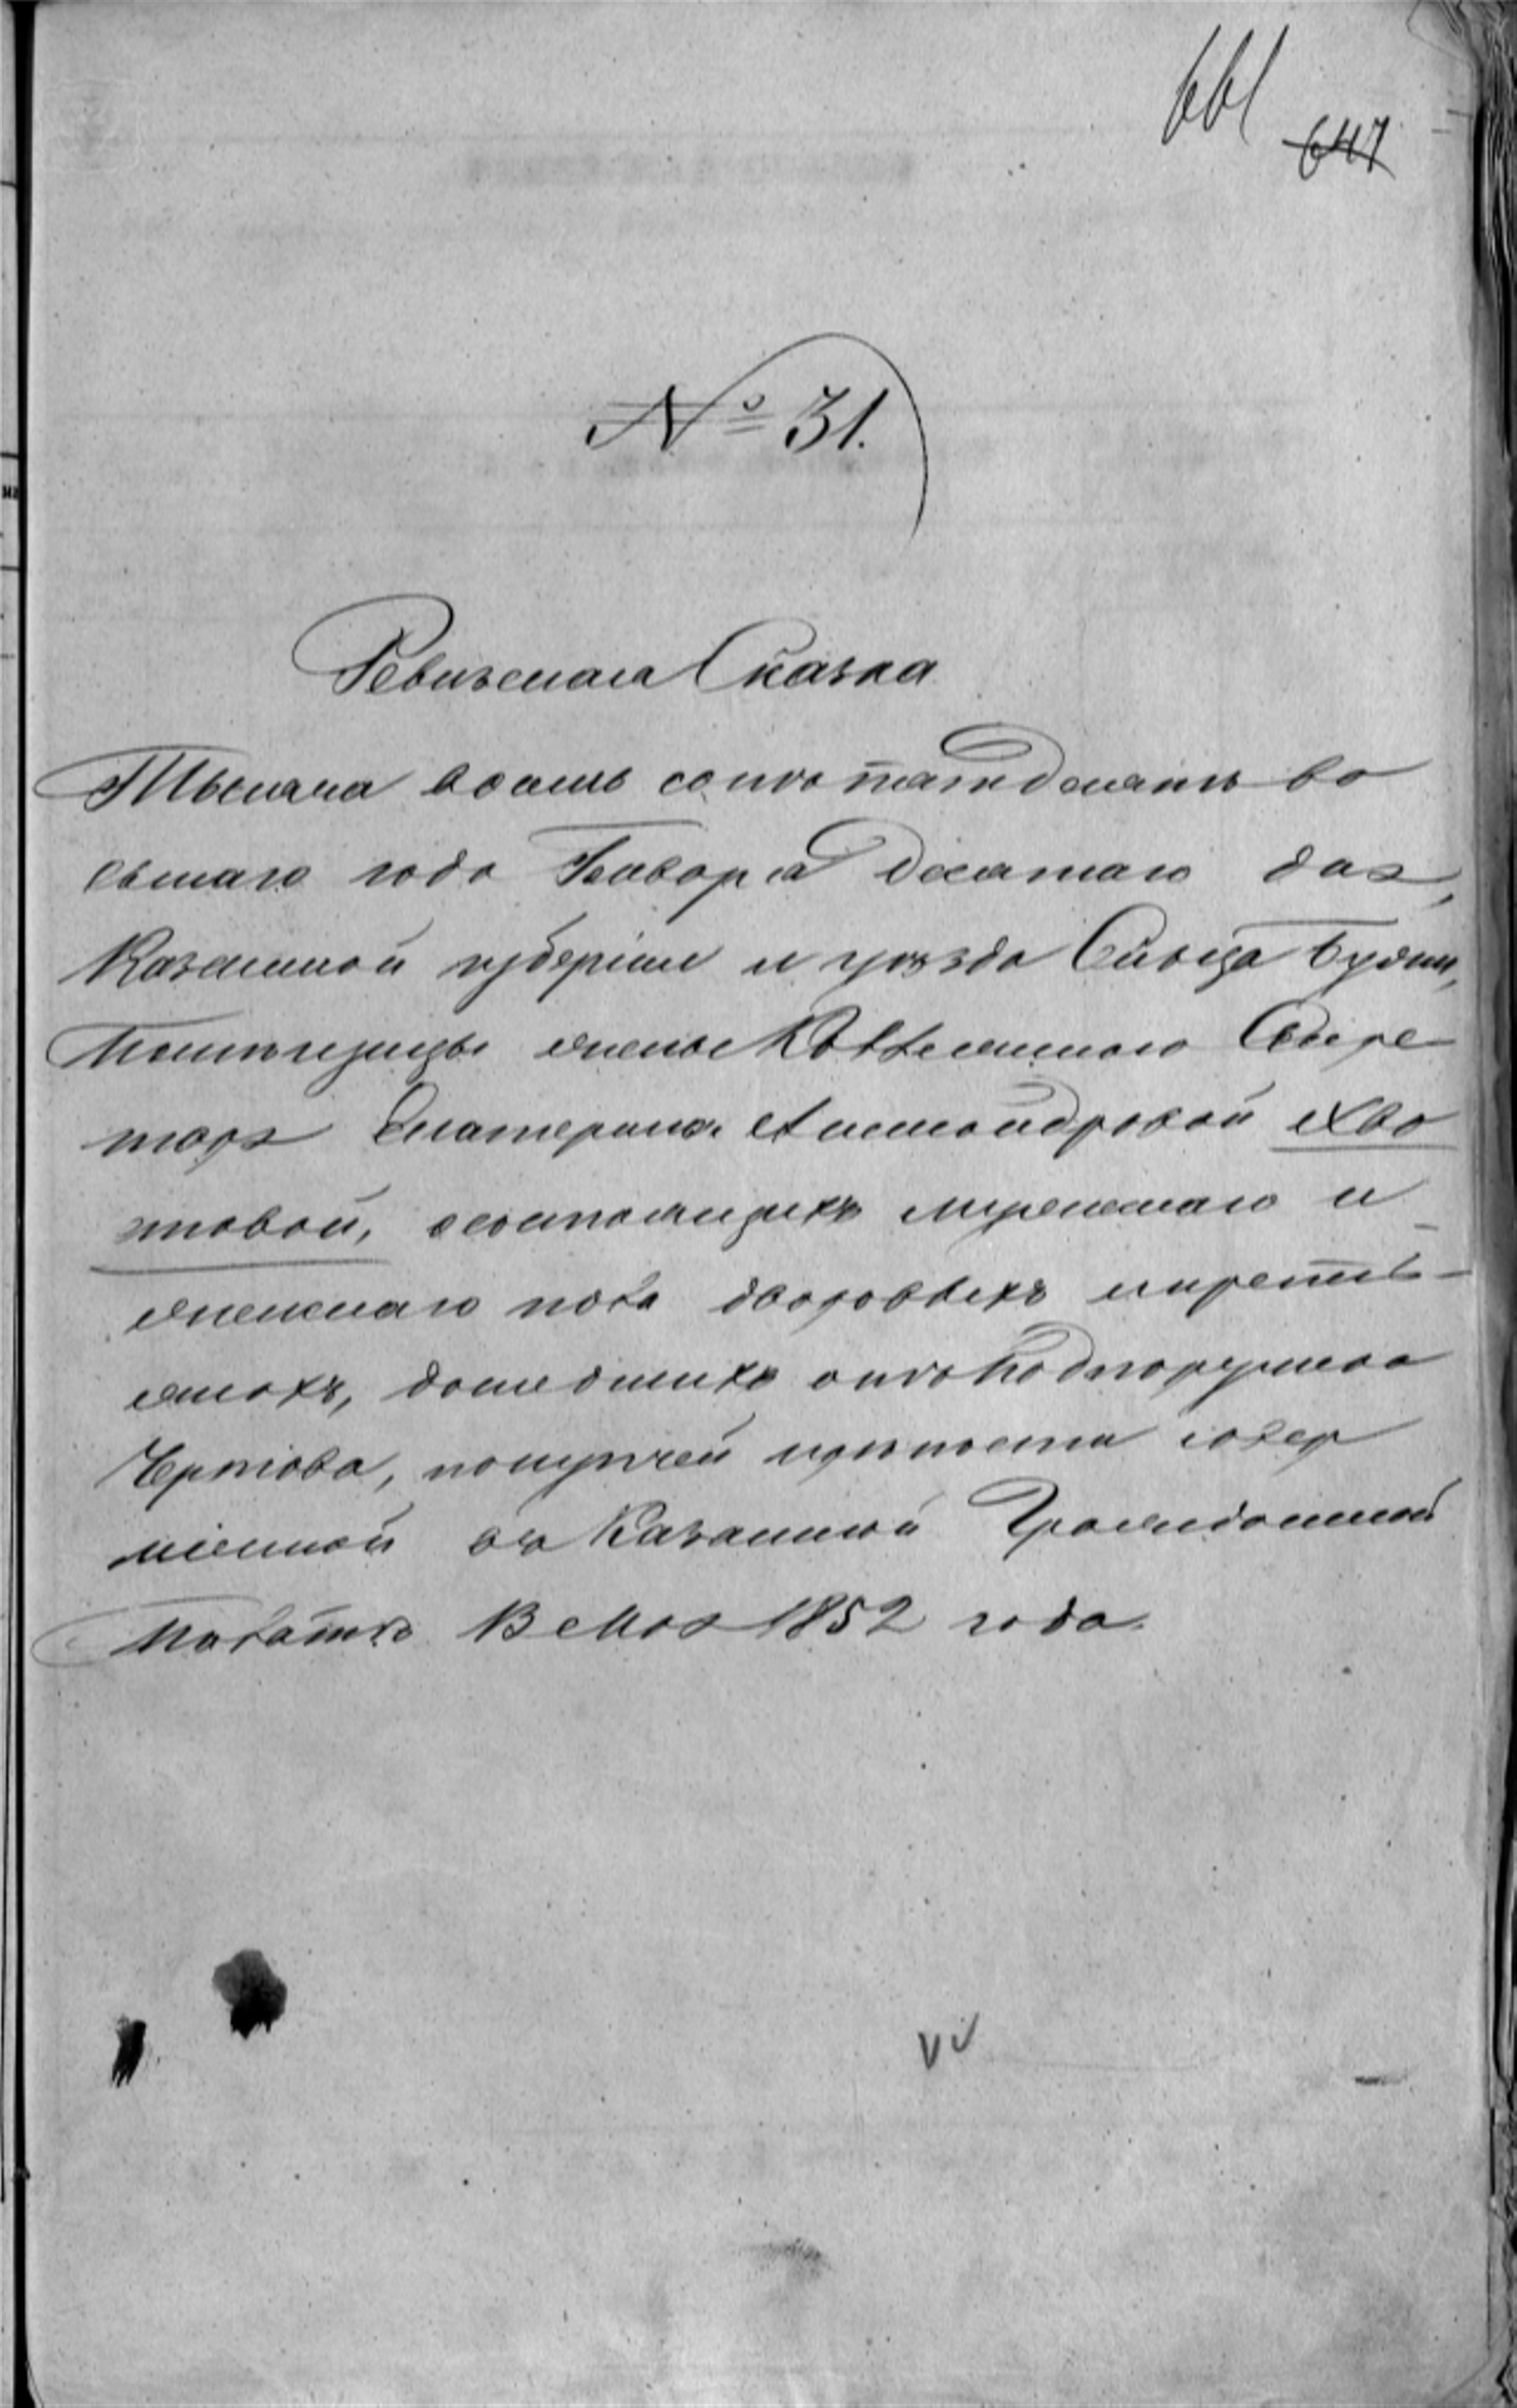 661
647
№ 31.
Ревизская Сказка
Тысяча восемь сотъ пятдесятъ во
сьмаго года Генваря десятаго дня,
Казанской губерніи и уѣзда Сельца
Помѣщицы жены Коллежскаго Секре
таря Екатерины Александровой Хво
стовой, состоящихъ мужескаго и
женскаго пола дворовыхъ и кресть-
янахъ, дошедшихъ отъ Подпоручика
Чертова, по купчей крѣпости совер
шенной въ Казанской Гражданской
Палатѣ 13 Мая 1852 года.